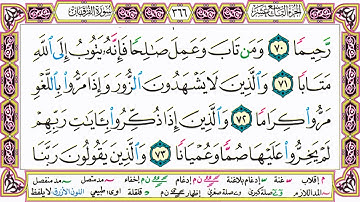 الجزء التاسع عشر ٣٦٦ سورة الفرقان
رَّحِيمًا ٧٠ وَمَن تَابَ وَعَمِلَ صَالِحًا فَإِنَّهُ يَتُوبُ إِلَى اللَّهِ
مَتَابًا ٧١ وَالَّذِينَ لَا يَشْهَدُونَ الزُّورَ وَإِذَا مَرُّوا بِاللَّغْوِ
مَرُّوا كِرَامًا ٧٢ وَالَّذِينَ إِذَا ذُكِّرُوا بِآيَاتِ رَبِّهِمْ
لَمْ يَخِرُّوا عَلَيْهَا صُمًّا وَعُمْيَانًا ٧٣ وَالَّذِينَ يَقُولُونَ رَبَّنَا